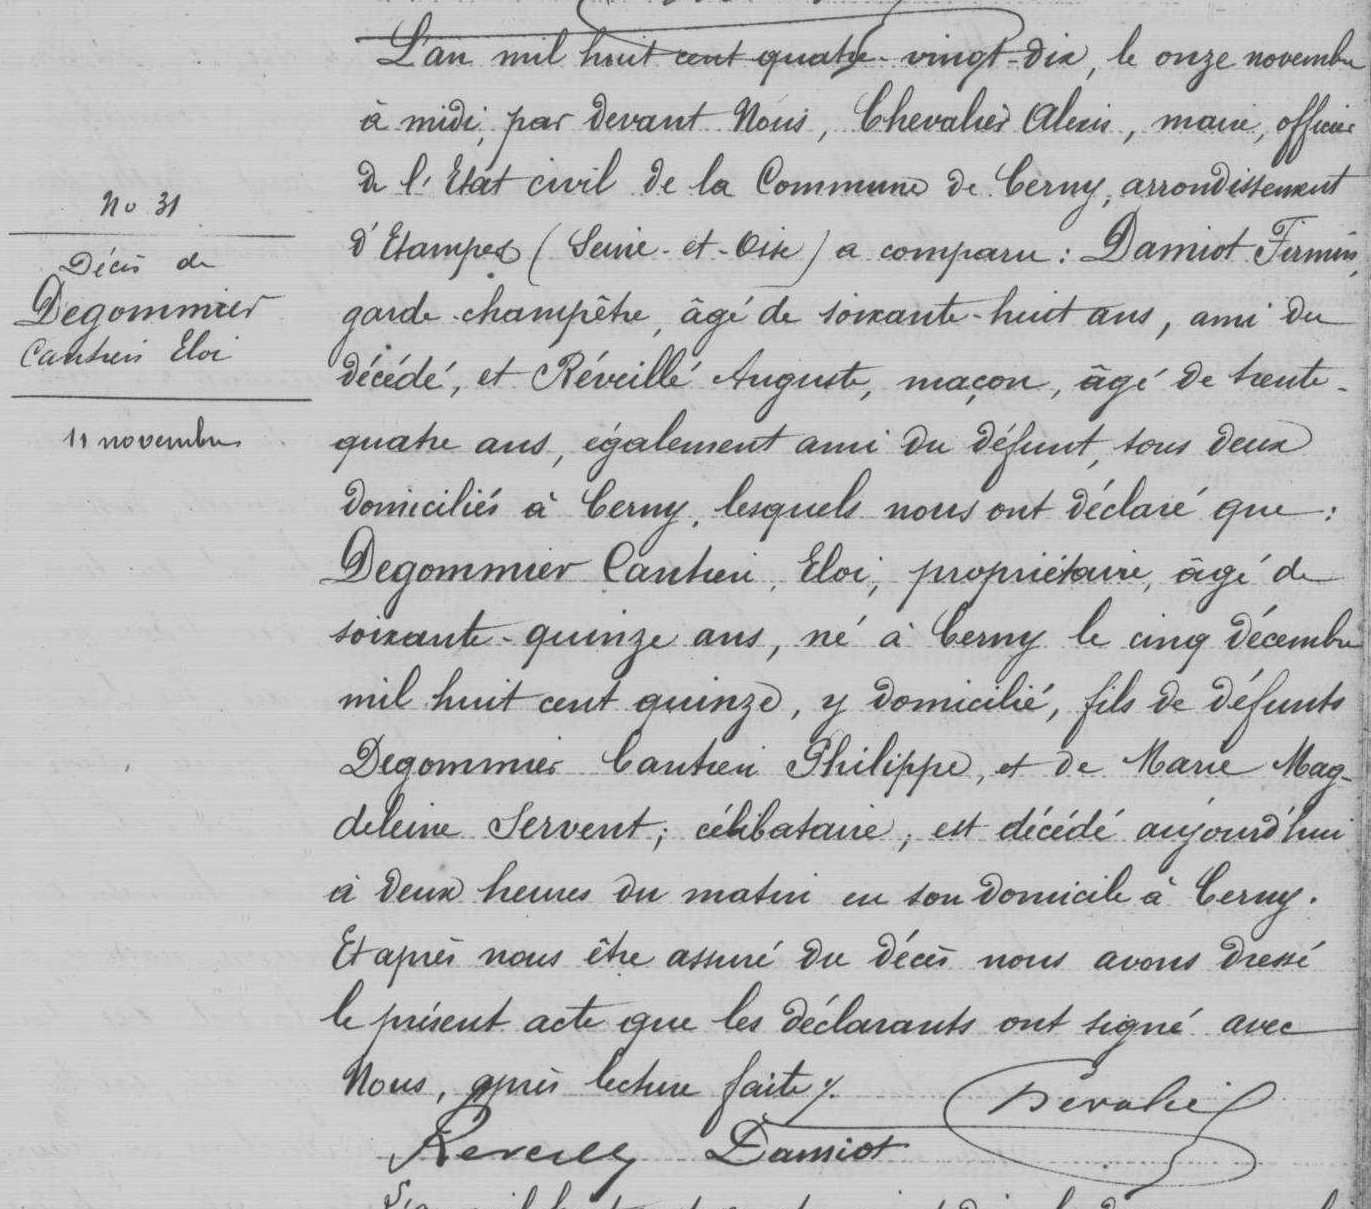 No 31
Décès de
Degommier
Cantien Eloi
11 novembre
L'an mil huit cent quatre-vingt-dix, le onze novembre
à midi, par devant Nous, Chevalier Alexis, maire, officier
de l'Etat civil de la Commune de Cerny, arrondissement
d'Etampes (Seine-et-Oise) a comparu : Damiot Firmin,
garde-champêtre, âgé de soixante-huit ans, ami du
décédé, et Réveillé Auguste, maçon, âgé de trente-
quatre ans, également ami du défunt, tous deux
domiciliés à Cerny, lesquels nous ont déclaré que :
Degommier Cantien, Eloi, propriétaire, âgé de
soixante-quinze ans, né à Cerny le cinq décembre
mil huit cent quinze, y domicilié, fils de défunts
Degommier Cantien Philippe, et de Marie Mag-
deleine Servent ; célibataire, est décédé aujourd'hui
à deux heures du matin en son domicile à Cerny.
Et après nous être assuré du décès nous avons dressé
le présent acte que les déclarants ont signé avec
Nous, après lecture faite ⁒
Chevalier
Reveillé Damiot